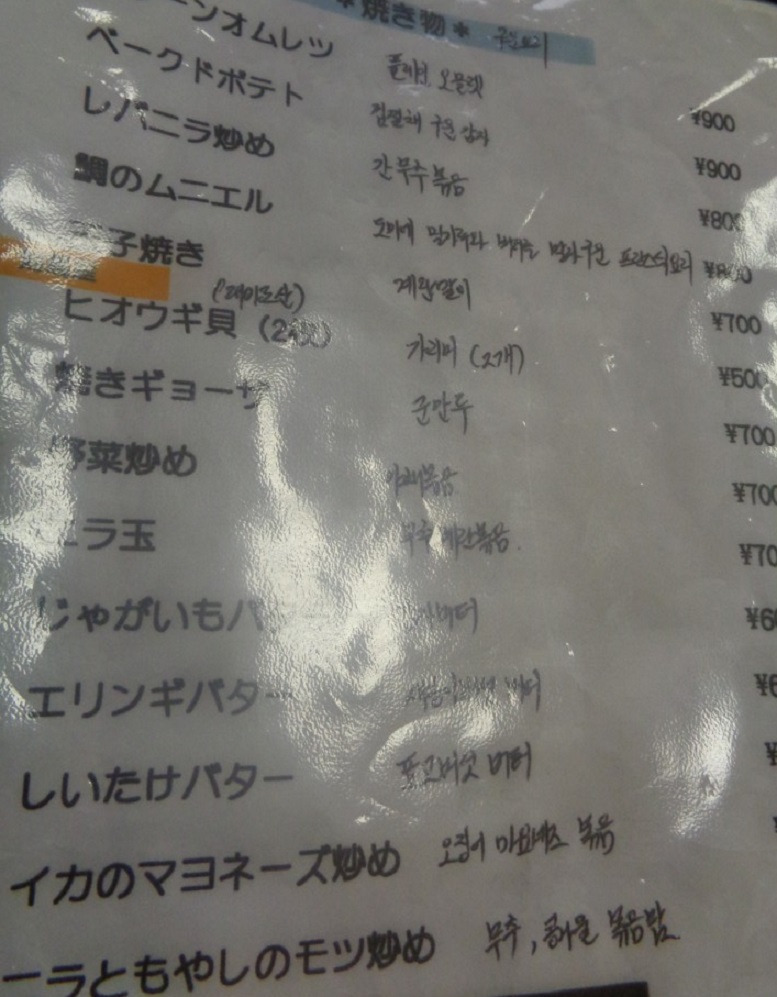 ＊焼き物＊ 구이요리
ーンオムレツ 플레인 오믈렛 ¥900
ベークドポテト 껍질채 구운 감자 ¥900
レバニラ炒め 간부추볶음 ¥800
鯛のムニエル 도미에 밀가루와 버터를 발라구운 프랑스식요리
子焼き 계란말이 ¥700
ヒオウギ貝 가리비 (2개) ¥500
焼きギョーザ 군만두 ¥700
野菜炒め 야채볶음 ¥700
ニラ玉 부추계란볶음. ¥70
じゃがいもバ 버터 ¥6
エリンギバター 버터 ¥6
しいたけバター 표고버섯 버터 ¥
イカのマヨネーズ炒め 오징어 마요네즈 볶음
ーラともやしのモツ炒め 부추, 콩나물 볶음밥